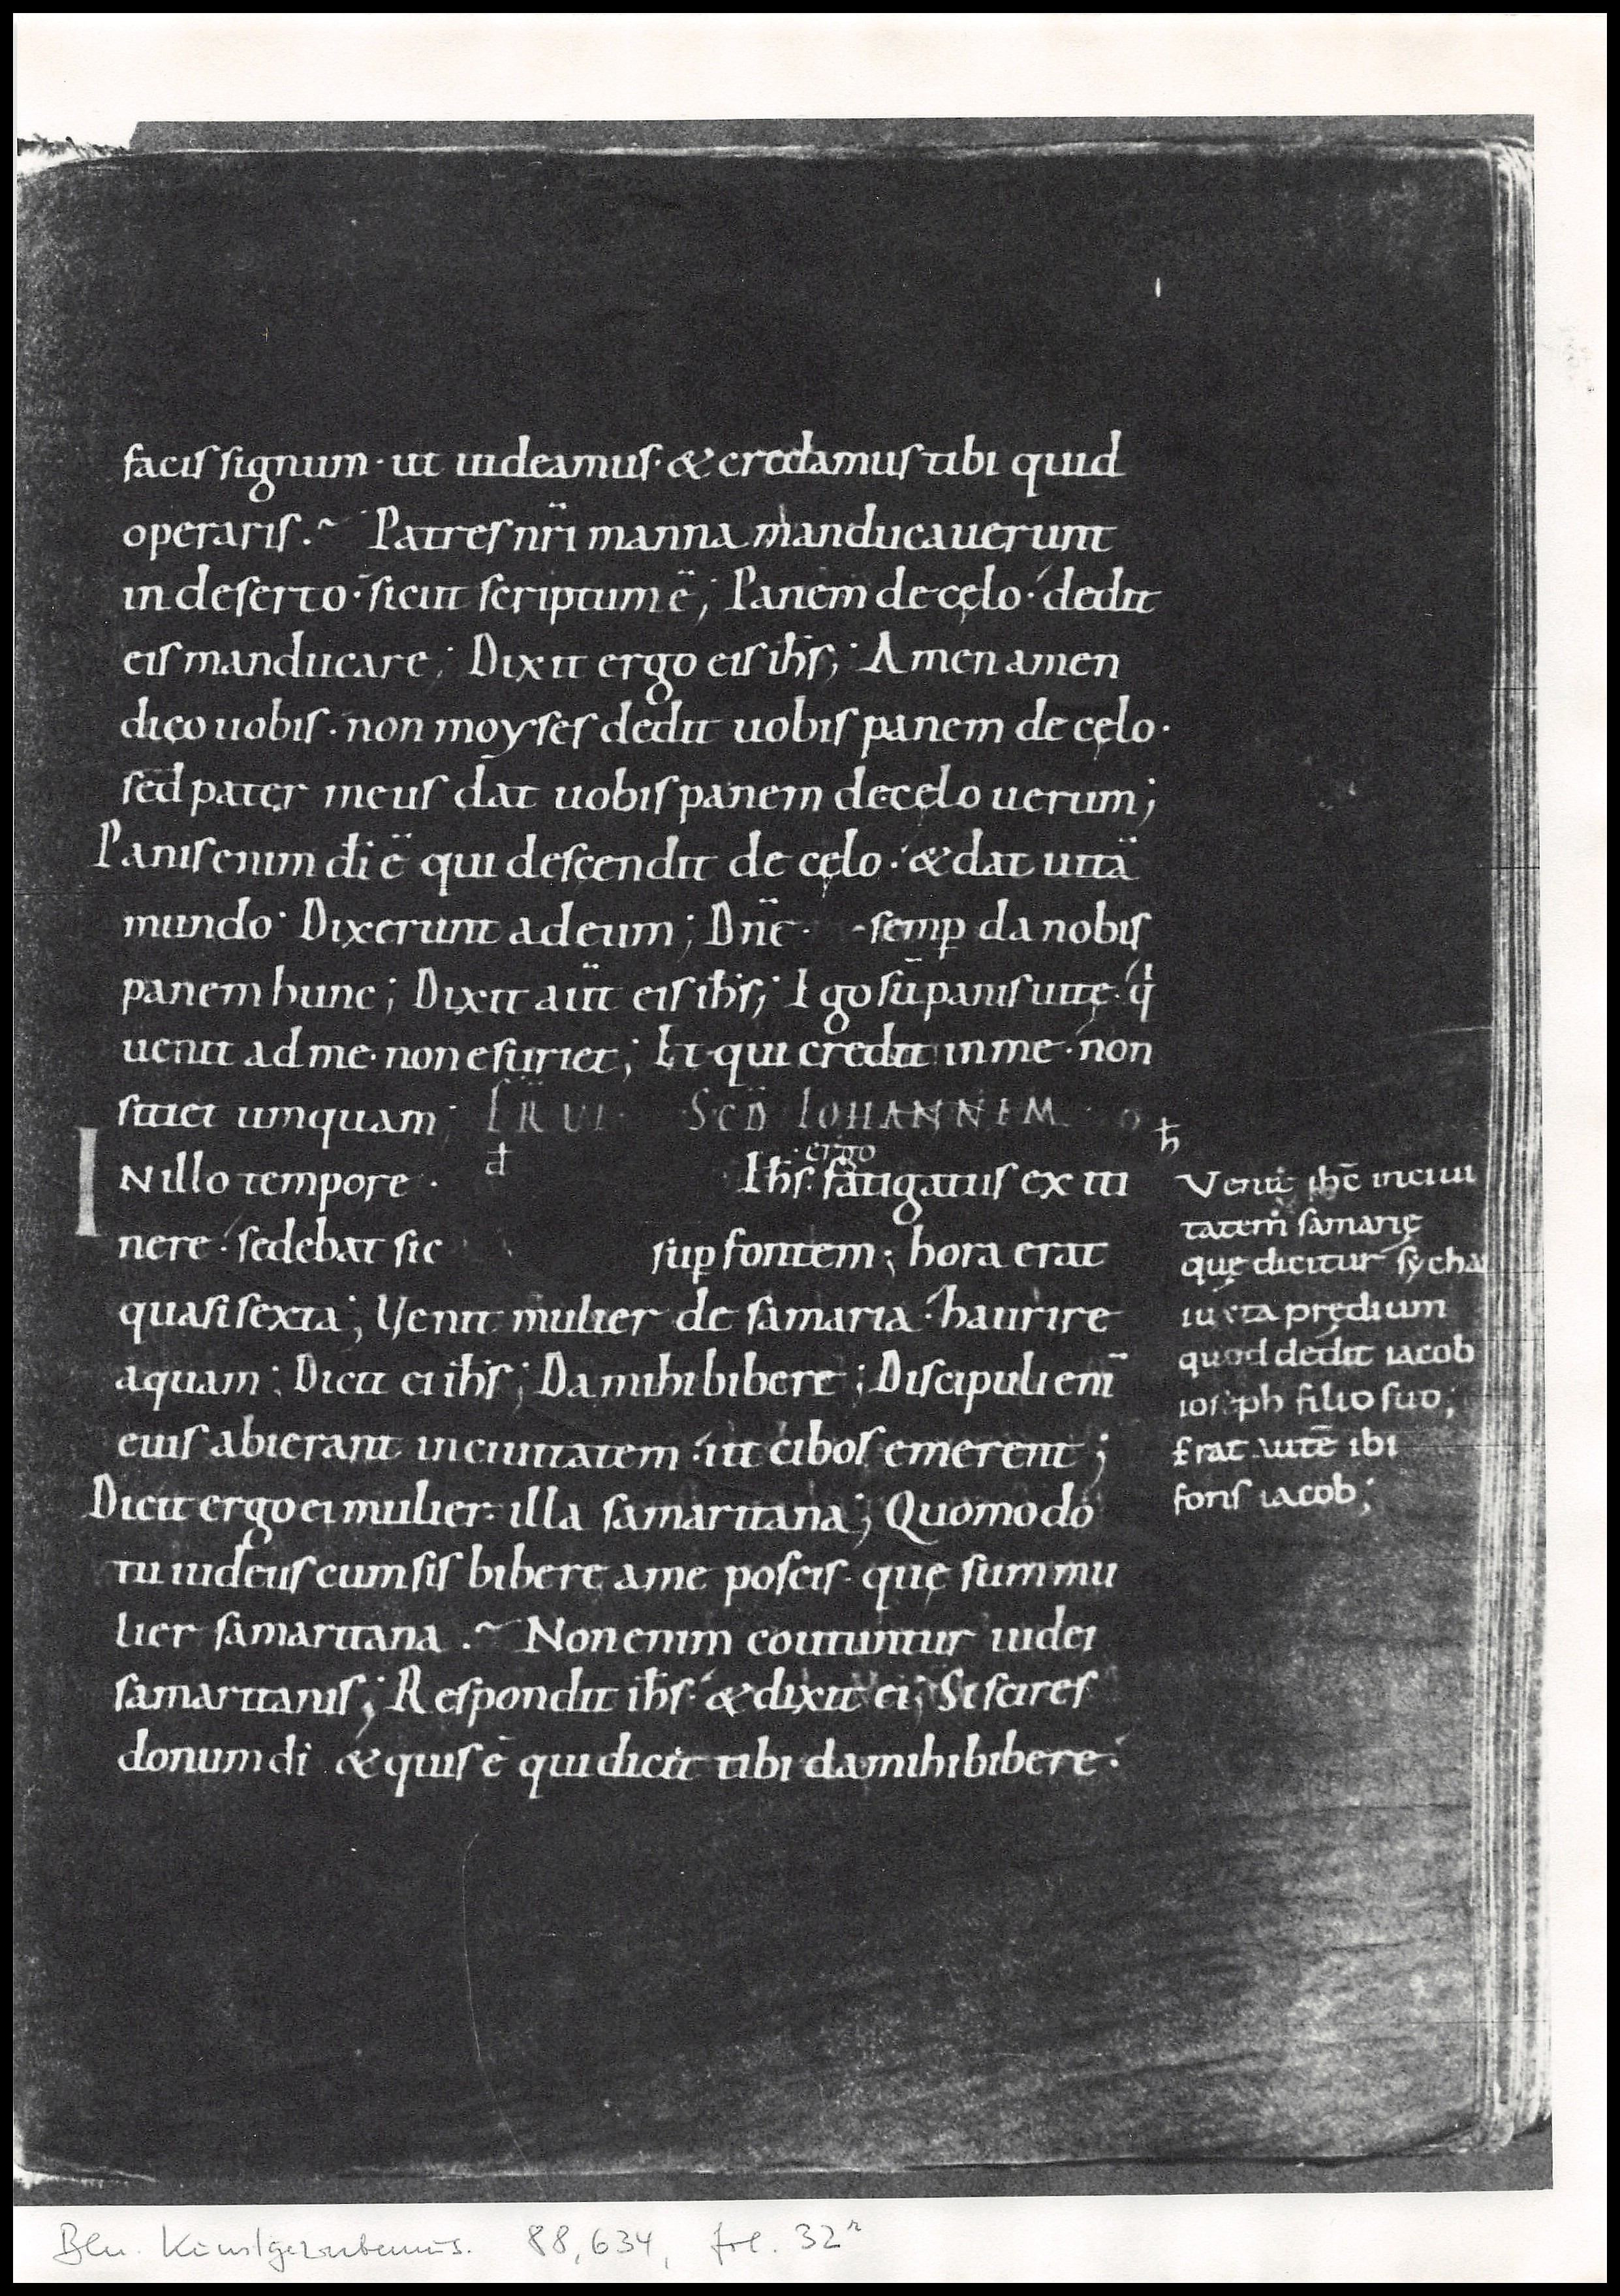 facis signum · ut uideamus · & credamus tibi quid
operaris. Patres nr̄i manna manducauerunt
in deserto · sicut scriptum ē; Panem de cęlo · dedit
eis manducare; Dixit ergo eis ih̄s; Amen amen
dico uobis · non moyses dedit uobis panem de cęlo ·
sed pater meus dat uobis panem de cęlo uerum;
Panis enim d̄i ē qui descendit de cęlo · & dat uitā
mundo · Dixerunt ad eum; Dn̄e · semp̱ da nobis
panem hunc; Dixit aūt eis ih̄s; Ego sū panis uitę · q̇
uenit ad me · non esuriet; Et qui credit in me · non
sitiet umquam; SCD̄ IOHANNEM
IN illo tempore · đ Ih̄s · ergo fatigatus ex iti ħ
nere · sedebat sic sup̱ fontem; hora erat
quasi sexta; Venit mulier de samaria · haurire
aquam; Dicit ei ih̄s; Da mihi bibere; Discipuli em̄
eius abierant in ciuitatem · ut cibos emerent;
Dicit ergo ei mulier · illa samaritana; Quomodo
tu iudeus cum sis bibere a me poscis · quę sum mu
lier samaritana. Non enim coutuntur iudei
samaritanis; Respondit ih̄s · & dixit ei; Si scires
donum di & quis ē qui dicit tibi da mihi bibere ·
Venit ih̄c in ciui
tatem samarię
quę dicitur sychar
iuxta prędium
quod dedit iacob
ioseph filio suo;
Erat autē ibi
fons iacob;
Bln. Kunstgewerbemus. 88,634, fol. 32r